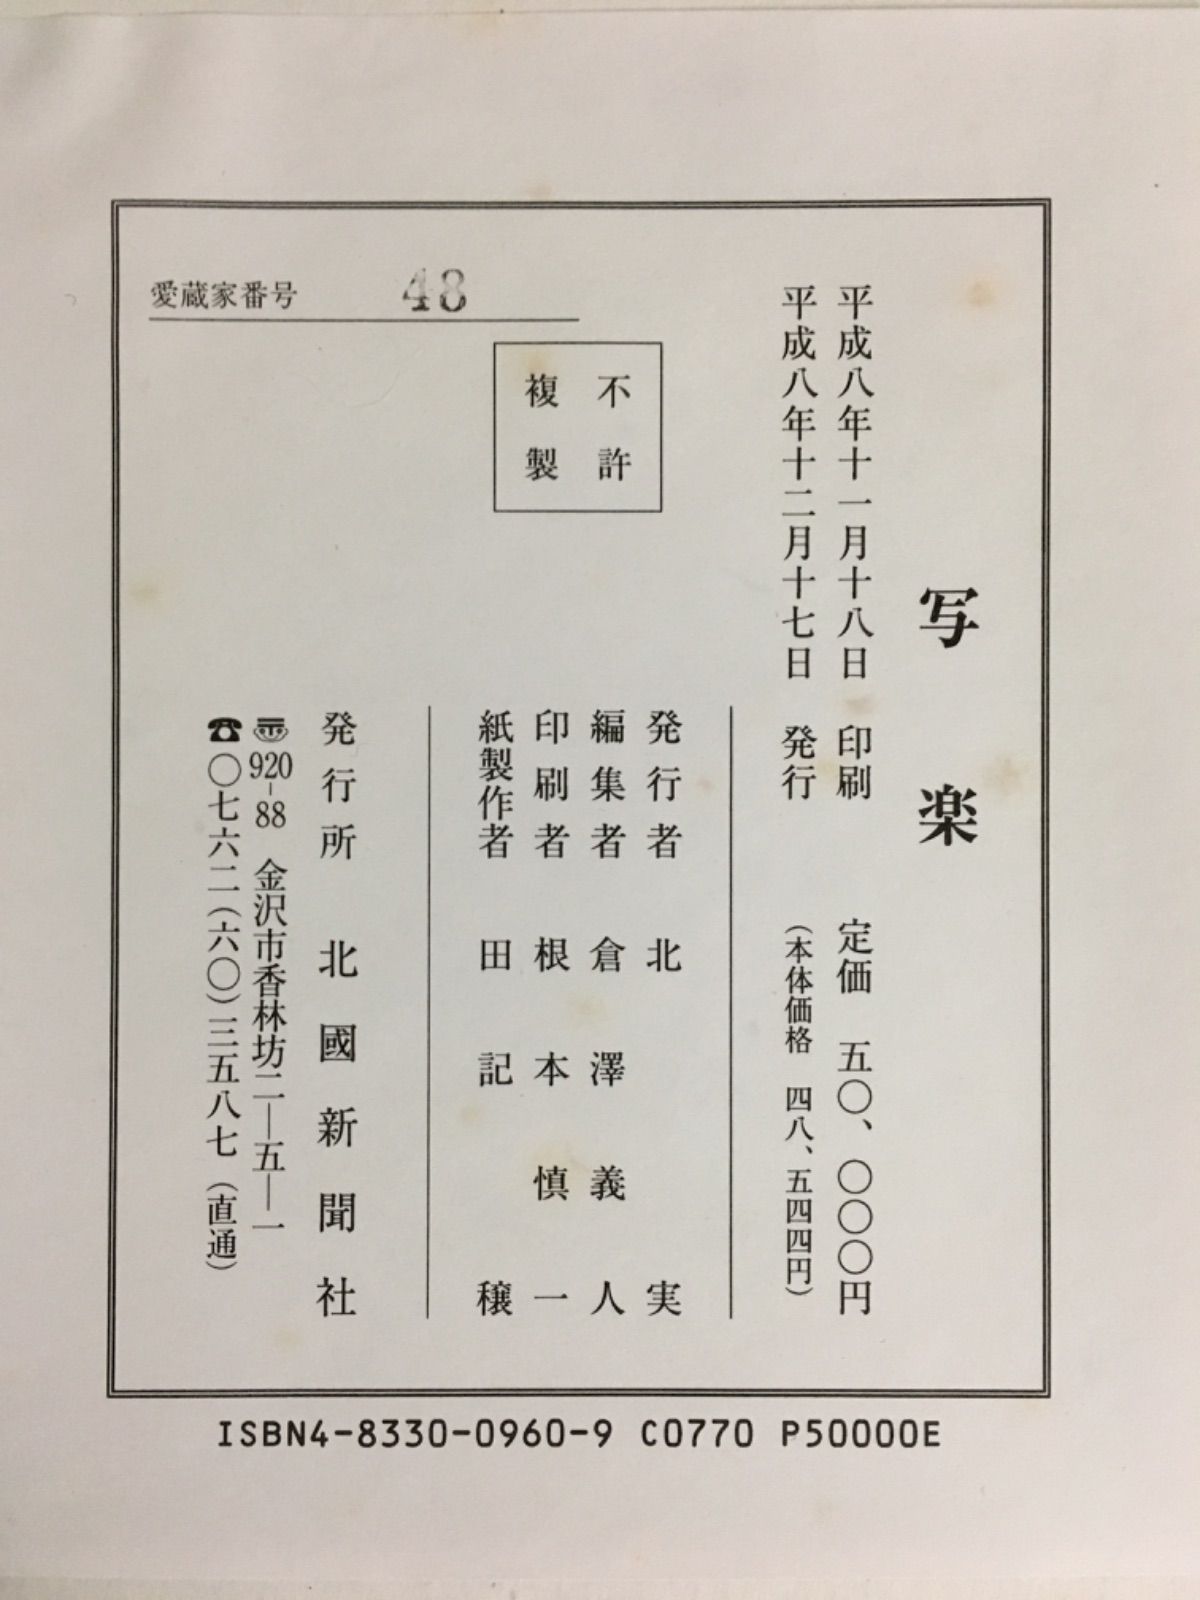 写楽
平成八年十一月十八日 印刷 定価 五〇、〇〇〇円
平成八年十二月十七日 発行 (本体価格 四八、五四四円)
発行者 北 実
編集者 倉澤義人
印刷者 根本慎一
紙製作者 田記穣
不許
複製
発行所 北國新聞社
〠920-88 金沢市香林坊二―五―一
☎〇七六二(六〇)三五八七(直通)
愛蔵家番号 48
ISBN4-8330-0960-9 C0770 P50000E